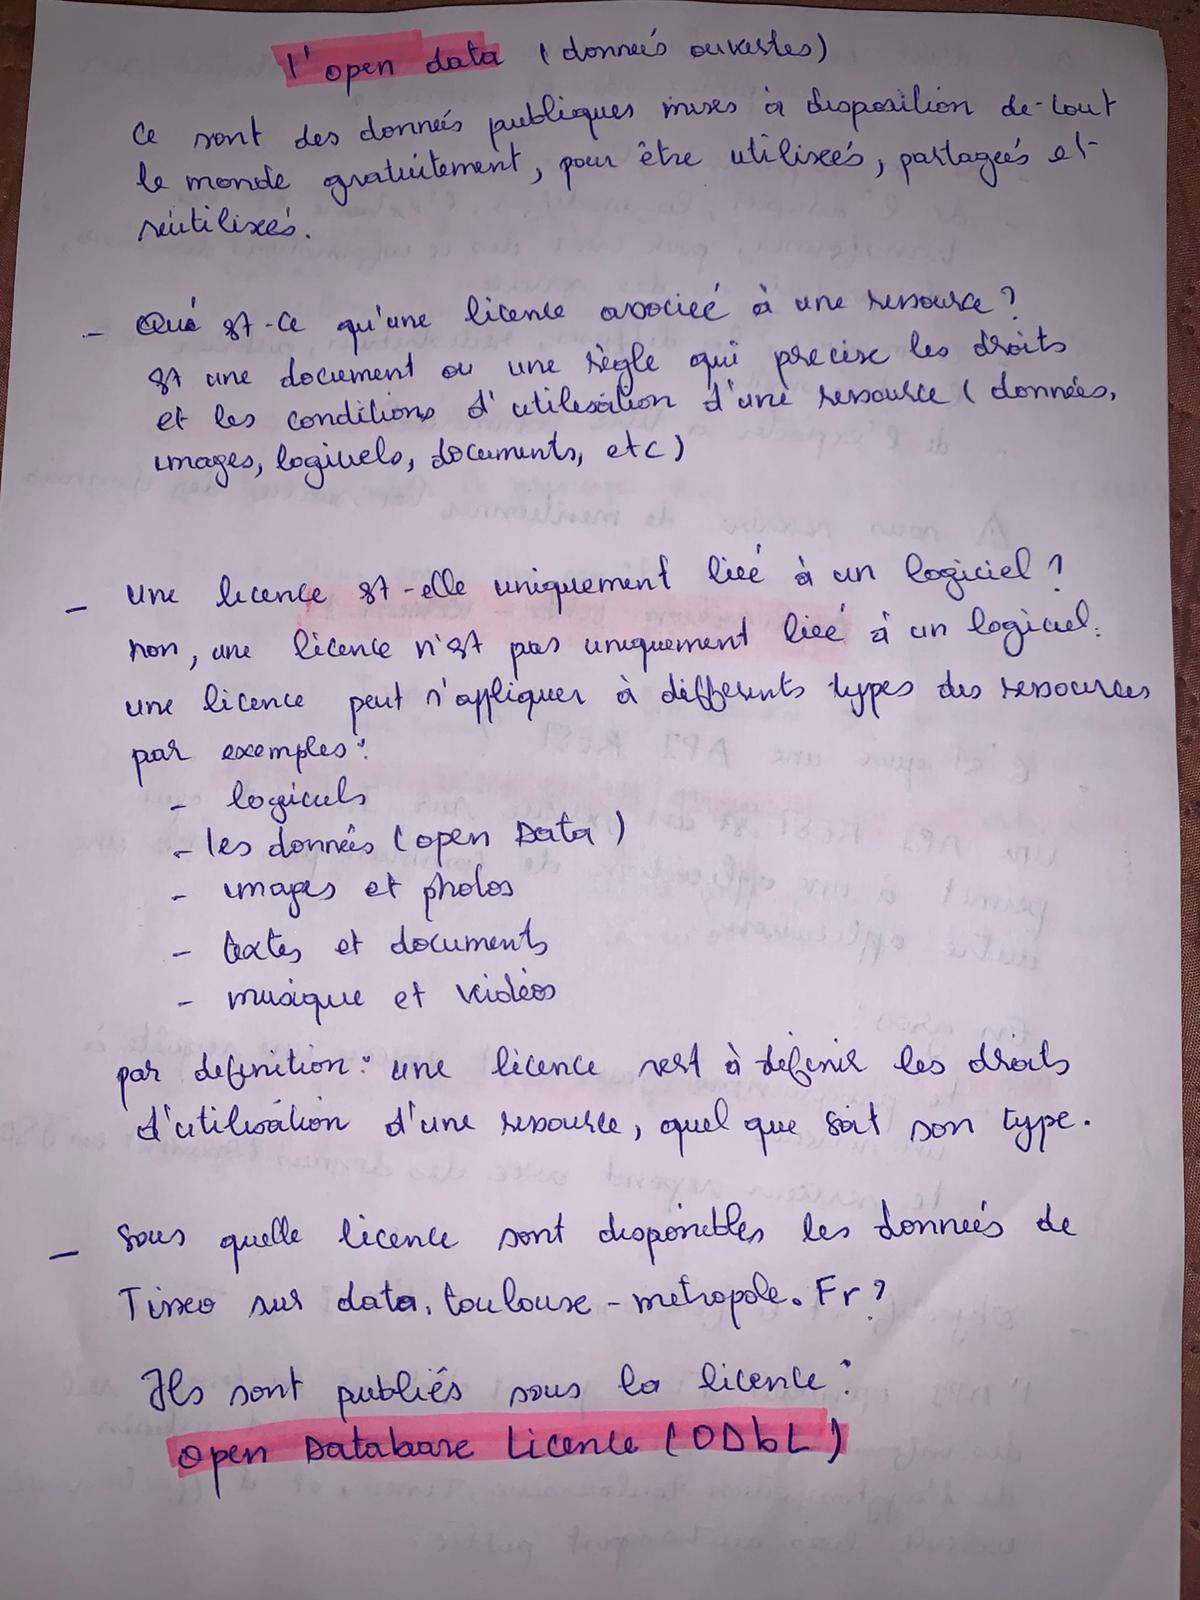 l'open data (données ouvertes)
Ce sont des données publiques mises à disposition de tout
le monde gratuitement, pour être utilisées, partagées et
réutilisées.
- Qué est-ce qu'une licence associeé à une ressource ?
est une document ou une règle qui precise les droits
et les conditions d'utilisation d'une ressource (données,
images, logiciels, documents, etc)
- Une licence est-elle uniquement lieé à un logiciel ?
non, une licence n'est pas uniquement lieé à un logiciel.
une licence peut s'appliquer à différents types des ressources
par exemples :
- logiciels
- les données (open Data)
- images et photos
- textes et documents
- musique et vidéos
par definition : une licence sert à définir les droits
d'utilisation d'une ressource, quel que soit son type.
- Sous quelle licence sont disponibles les données de
Tisseo sur data.toulouse-metropole.Fr ?
Ils sont publiés sous la licence :
open Database Licence (ODbL)